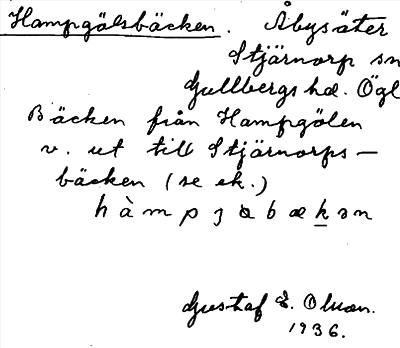 Hampgölsbäcken. Åbysäter
Stjärnorp sn
Gullbergs hd. Ögl
Bäcken från Hampgölen
v. ut till Stjärnorps–
bäcken (se ek.)
Gustaf E. Olsson.
1936.